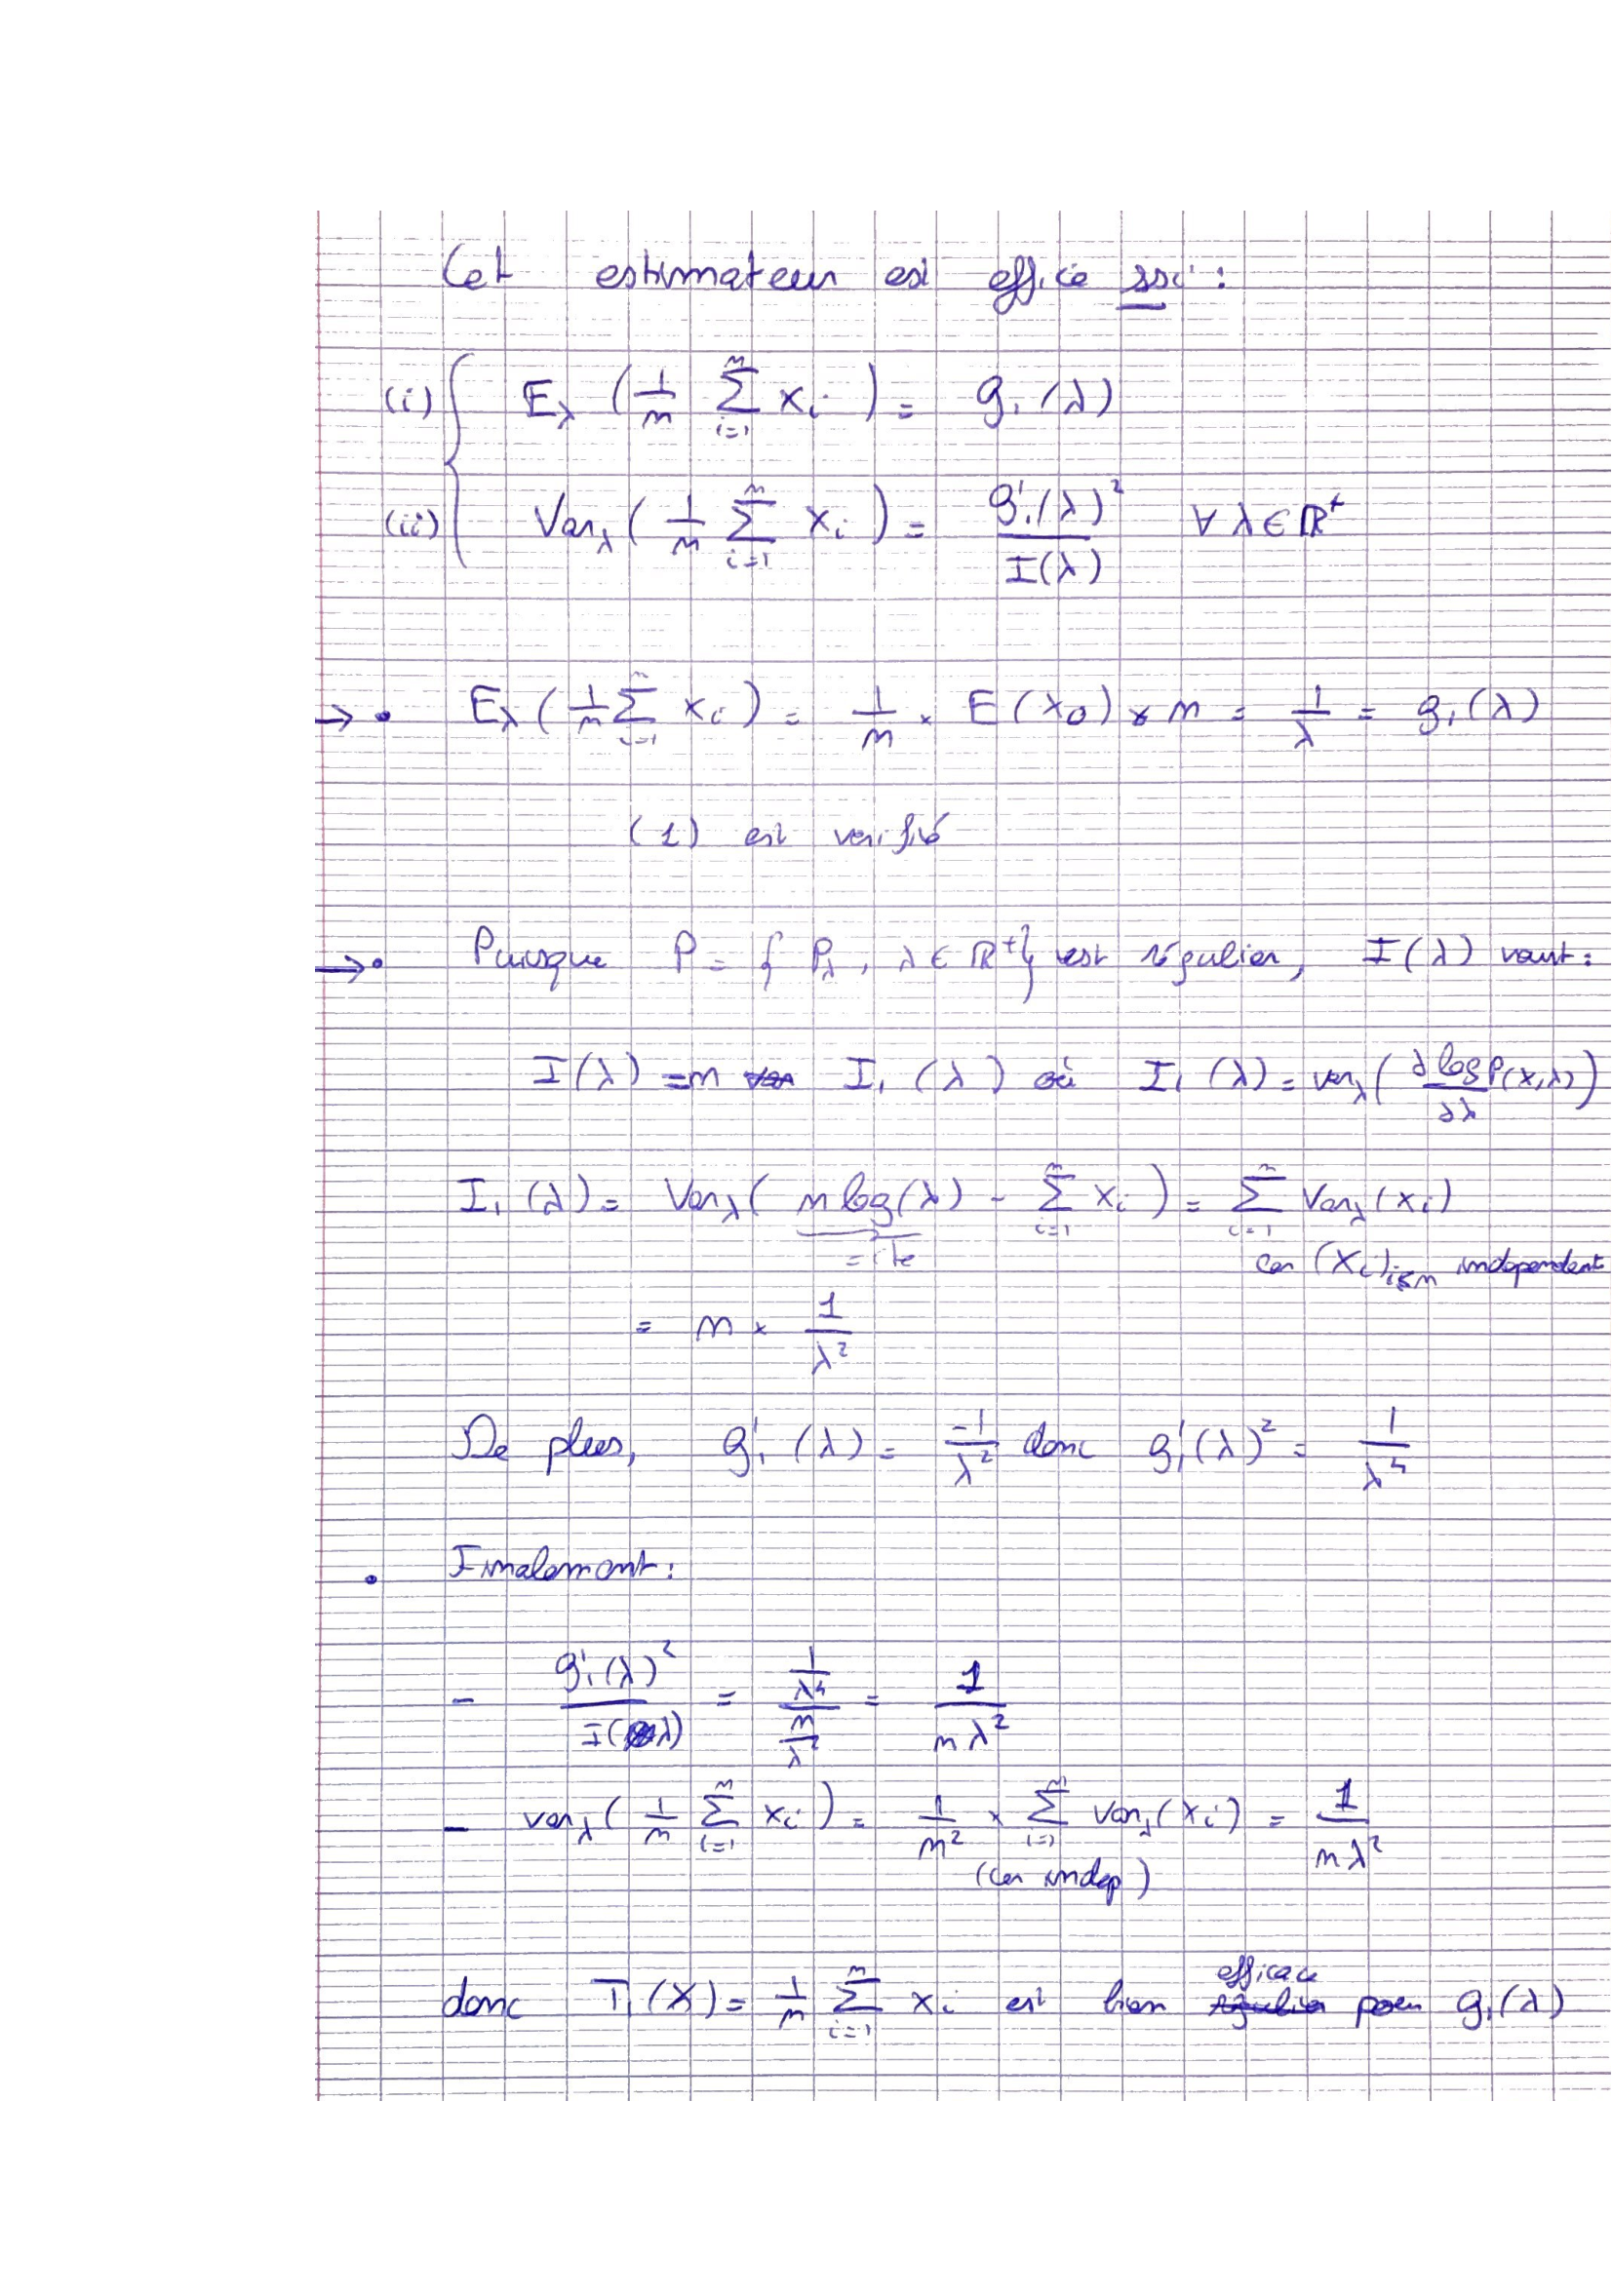 Cet estimateur est effice ssi :
(i) E_λ ( 1/n Σ_{i=1}^{n} X_i ) = g_1(λ)
(ii) Var_λ ( 1/n Σ_{i=1}^{n} X_i ) = g'_1(λ)² / I(λ) ∀ λ ∈ ℝ⁺
→ • E_λ ( 1/n Σ_{i=1}^{n} X_i ) = 1/n × E(X_0) × n = 1/λ = g_1(λ)
(1) est verifié
→ • Puisque P = { P_λ, λ ∈ ℝ⁺ } est régulier, I(λ) vaut :
I(λ) = n I_1(λ) où I_1(λ) = var_λ ( ∂ log P(X,λ) / ∂λ )
I_1(λ) = Var_λ ( n log(λ) - Σ_{i=1}^{n} X_i ) = Σ_{i=1}^{n} Var_λ(X_i)
= cte car (X_i)_{i≤n} independent
= n × 1/λ²
De plus, g'_1(λ) = -1/λ² donc g'_1(λ)² = 1/λ⁴
• Finalement :
- g'_1(λ)² / I(λ) = (1/λ⁴) / (n/λ²) = 1 / (n λ²)
- var_λ ( 1/n Σ_{i=1}^{n} X_i ) = 1/n² × Σ_{i=1}^{n} Var_λ(X_i) = 1 / (n λ²)
(car indep)
donc T_1(X) = 1/n Σ_{i=1}^{n} X_i est bien efficace pour g_1(λ)